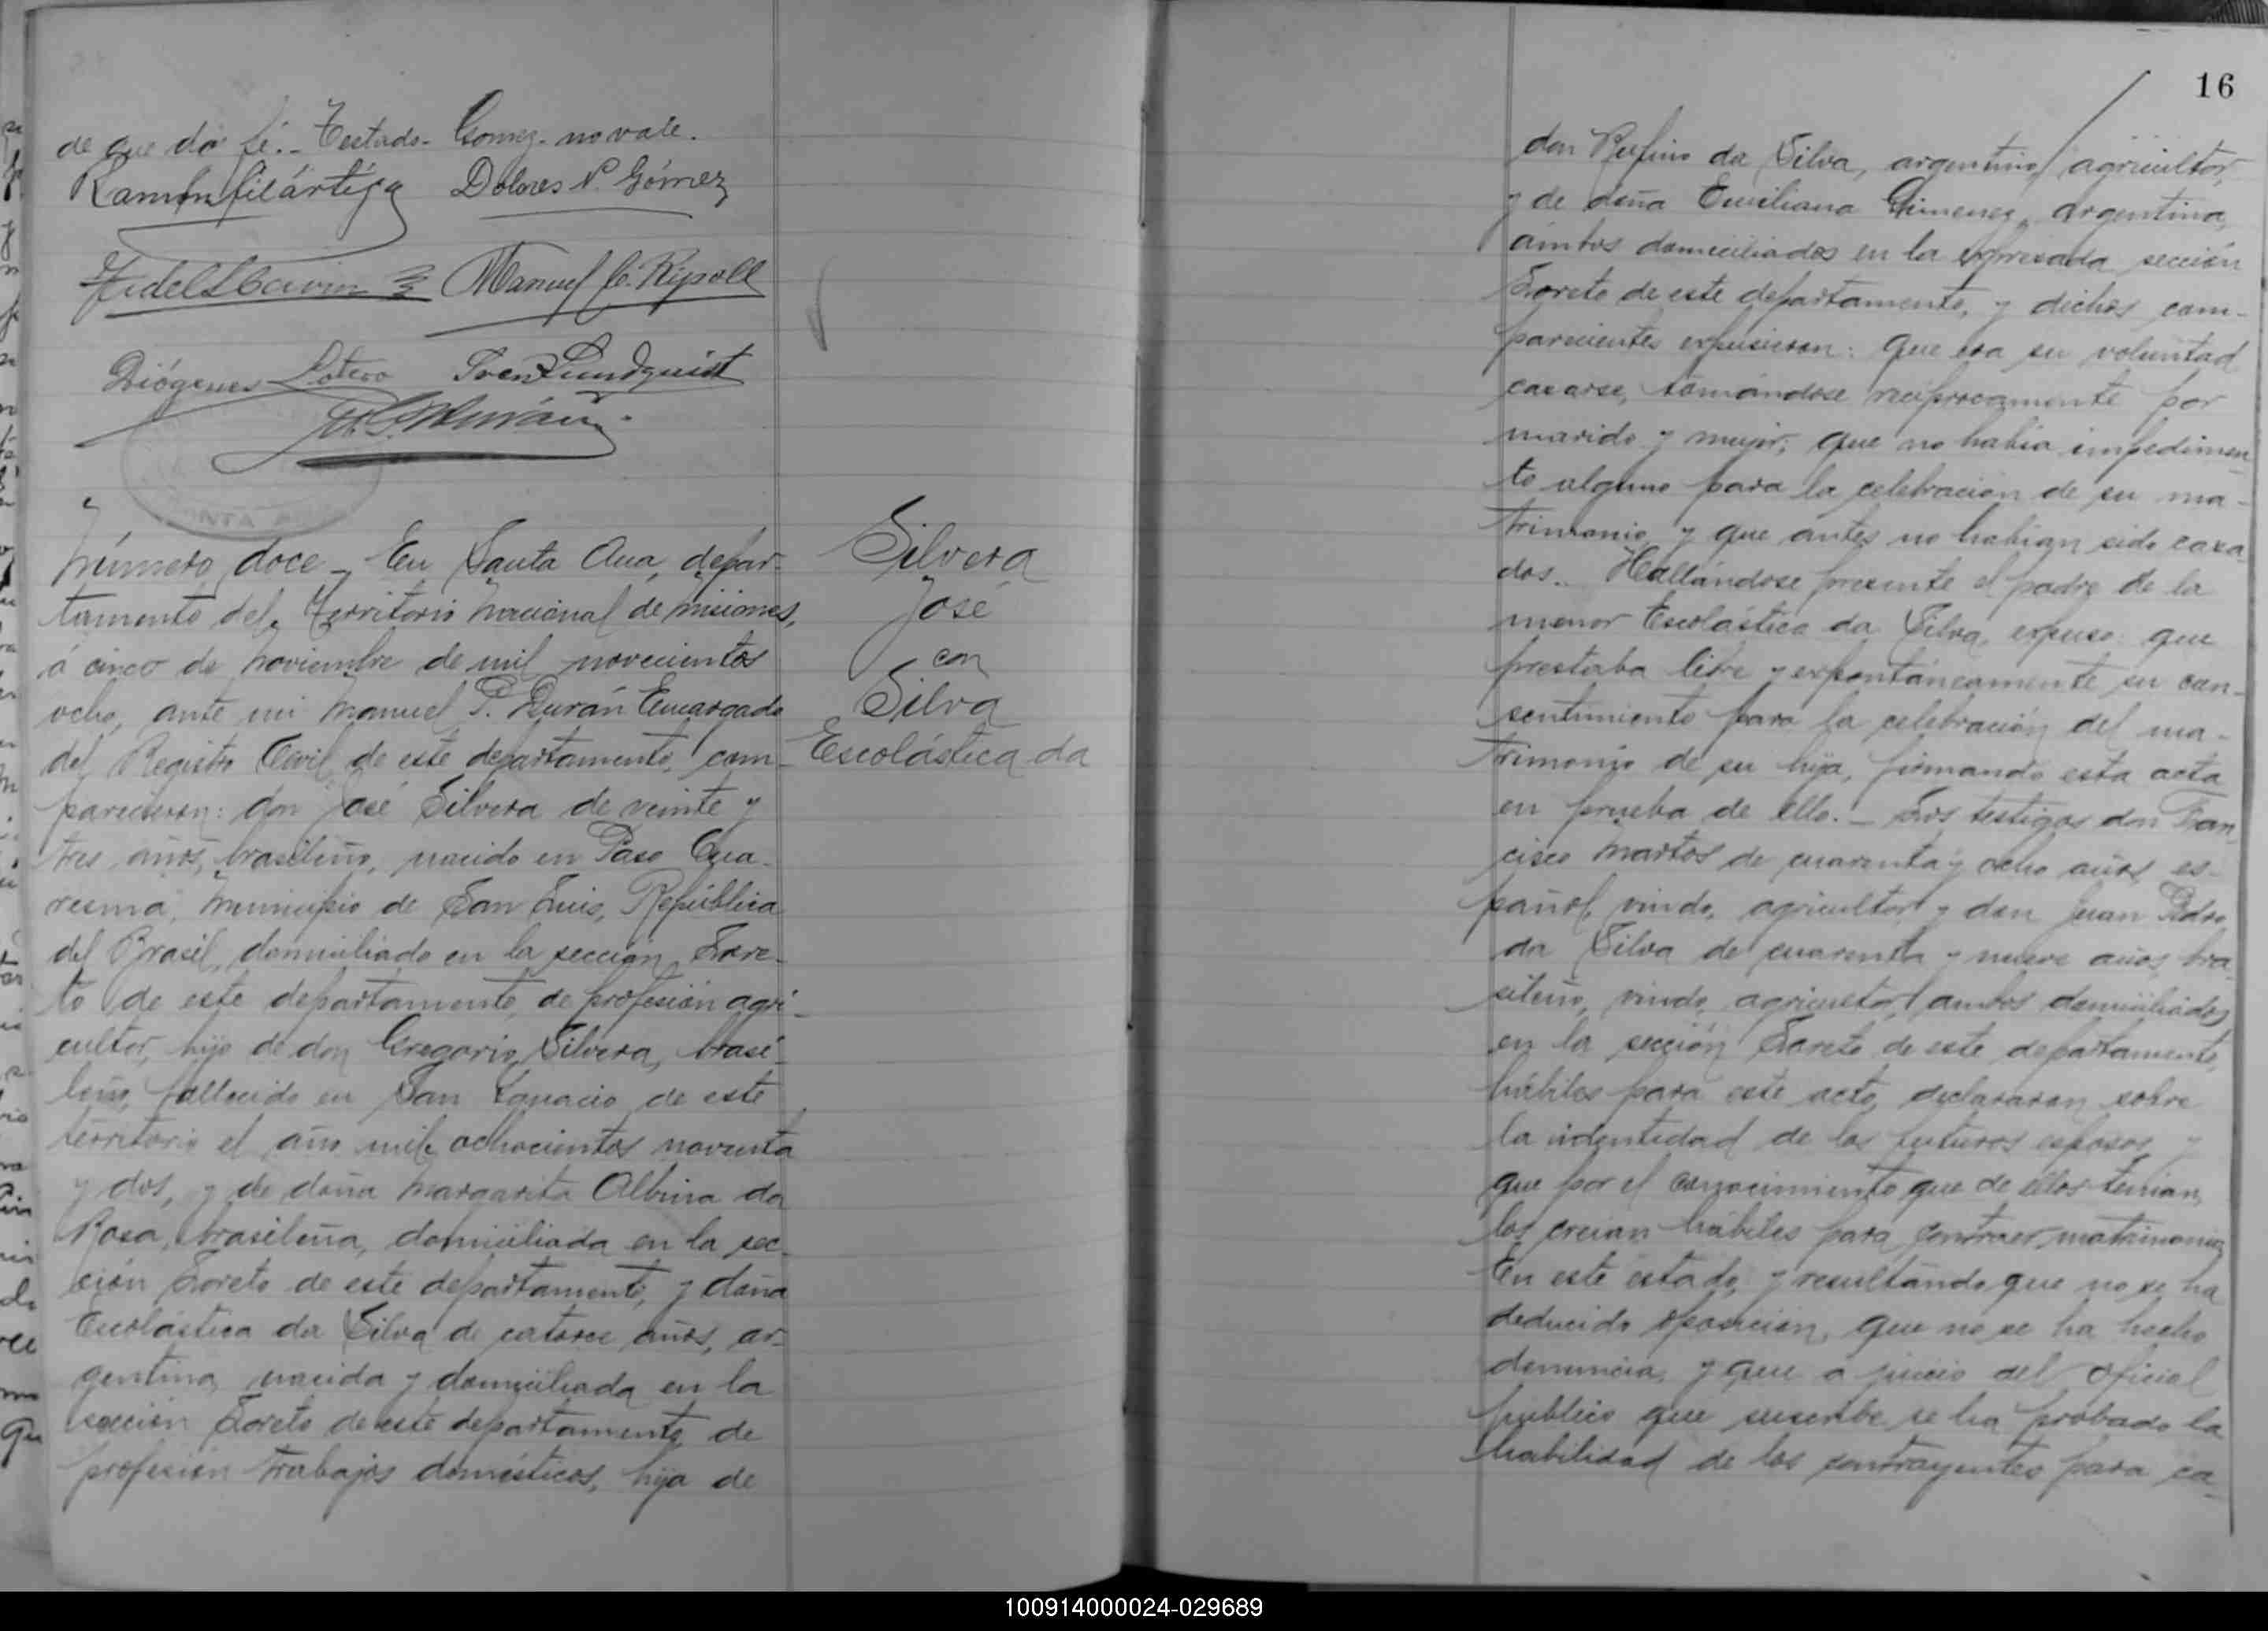 de que doi fé.- Testado- Gomez- no vale.
Ramón Filártiga Dolores N. Gómez
Manuel C. Ripoll
Diógenes Sotero Sven Lundquist
M. P. Durán
Número doce - En Santa Ana, depar-
tamento del Territorio Nacional de Misiones,
á cinco de Noviembre de mil novecientos
ocho, ante mi Manuel P. Durán Encargado
del Registro Civil de este departamento, com-
parecieron: don José Silvera de veinte y
tres años, brasileño, nacido en Paso Qua-
resma, Municipio de San Luis, República
del Brasil, domiciliado en la sección Lore-
to de este departamento, de profesión agri-
cultor, hijo de don Gregorio Silvera, brasi-
leño, fallecido en San Ignacio de este
territorio el año mil ochocientos noventa
y dos, y de doña Margarita Albina da
Rosa, brasileña, domiciliada en la sec-
ción Loreto de este departamento, y doña
Escolástica da Silva de catorce años, ar-
gentina, nacida y domiciliada en la
sección Loreto de este departamento, de
profesión trabajos domésticos, hija de
Silvera
José
con
Silva
Escolástica da
16
don Rufino da Silva, argentino, agricultor,
y de doña Emiliana Gimenez, argentina,
ámbos domiciliados en la expresada sección
Loreto de este departamento, y dichos com-
parecientes expusieron: Que era su voluntad
casarse, tomándose reciprocamente por
marido y mujer; que no habia impedimen-
to alguno para la celebración de su ma-
trimonio, y que ántes no habian sido casa-
dos.. Hallándose presente el padre de la
menor Escolástica da Silva, expuso: que
prestaba libre y expontáneamente su con-
sentimiento para la celebración del ma-
trimonio de su hija, firmando esta acta
en prueba de ello.- Los testigos don Fran-
cisco Martos de cuarenta y ocho años, es-
pañol, viudo, agricultor, y don Juan Pedro
da Silva de cuarenta y nueve años, bra-
sileño, viudo, agricultor, ambos domiciliados
en la sección Loreto de este departamento,
hábiles para este acto, declararon sobre
la identidad de los futuros esposos, y
que por el conocimiento que de ellos tenian,
los creian hábiles para contraer matrimonio
En este estado, y resultando que no se ha
deducido oposición, que no se ha hecho
denuncia, y que a juicio del oficial
público que suscribe se ha probado la
habilidad de los contrayentes para ca-
100914000024-029689